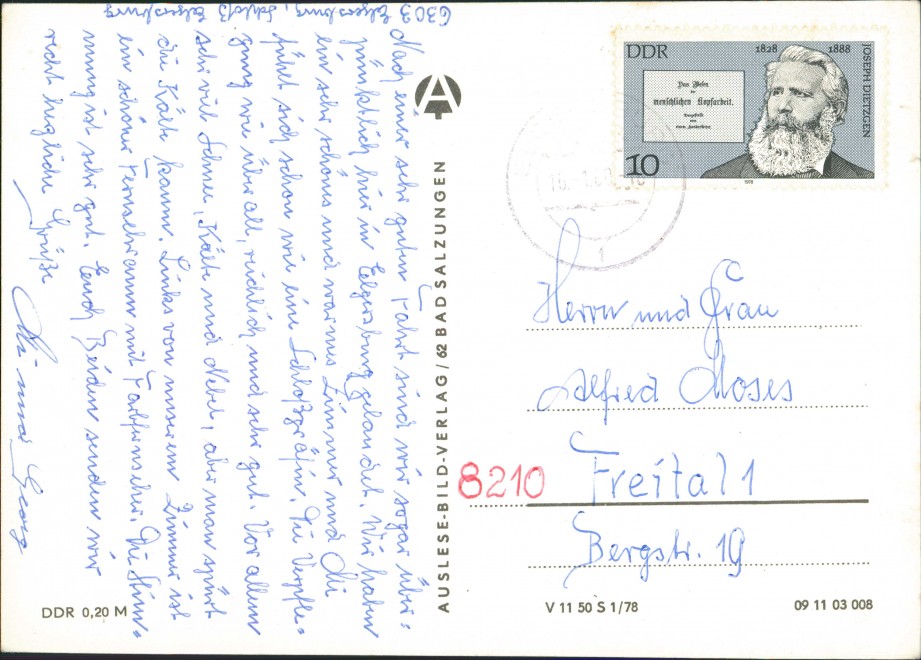 6303 Elgersburg, Schloß Elgersburg
Nach einer sehr guten Fahrt sind wir sogar über-
pünktlich hier in Elgersburg gelandet. Wir haben
ein sehr schönes und warmes Zimmer und Mi
fühlt sich schon wie eine Schloßgräfin. Die Verpfle-
gung wie überall, reichlich und sehr gut. Vor allem
sehr viel Schnee, Kälte und Nebel, aber man spürt
die Kälte kaum. Links von unserem Zimmer ist
ein schöner Fernsehraum mit Farbfernseher. Die Stim-
mung ist sehr gut. Euch Beiden senden wir
recht herzliche Grüße
Mi und Georg
DDR 0,20 M
AUSLESE-BILD-VERLAG / 62 BAD SALZUNGEN
DDR
1828
1888
JOSEPH DIETZGEN
Das Wesen
der
menschlichen Kopfarbeit.
10
1978
1
Herrn und Frau
Alfred Moses
8210 Freital 1
Bergstr. 19
V 11 50 S 1/78
09 11 03 008